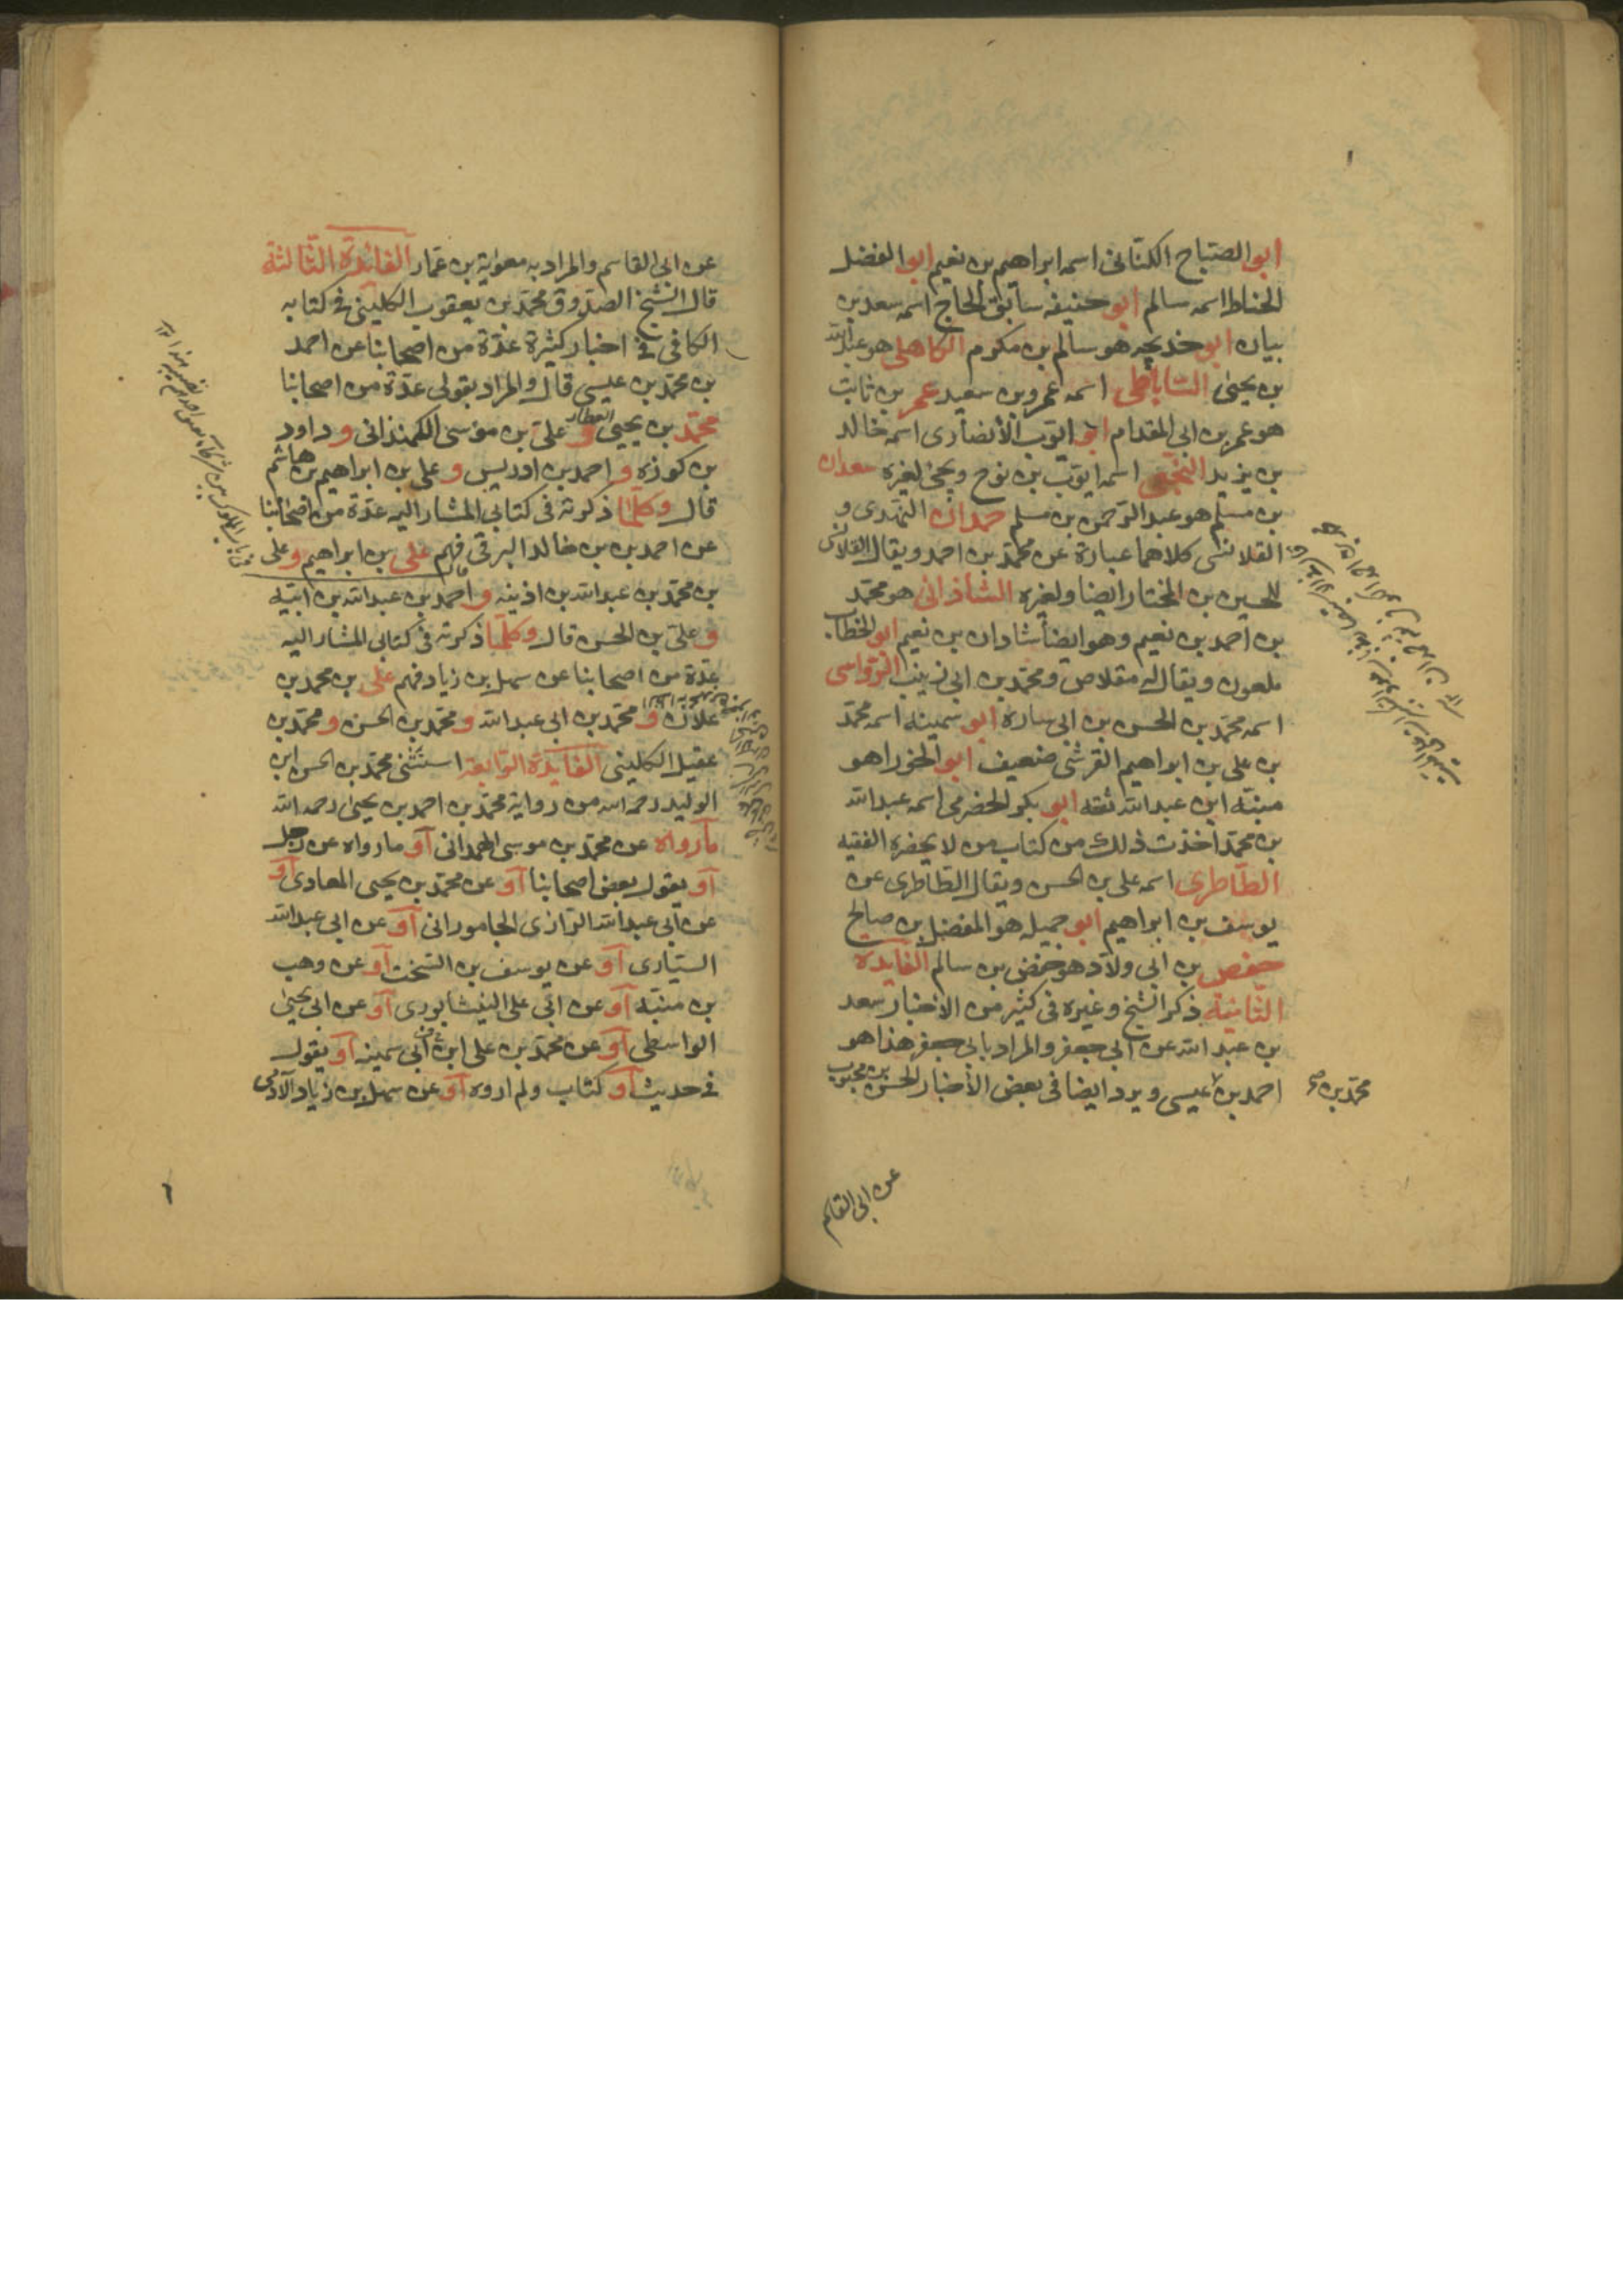 ابو الصباح الكنانى اسمه ابراهيم بن نعيم ابو الفضل
الحناط اسمه سالم ابو حنيفه سابق الحاج اسمه سعد بن
بيان ابو خديجه هو سالم بن مكرم الكاهلى هو عبد الله
بن يحيى الساباطى اسمه عمرو بن سعيد عمر بن ثابت
هو عمر بن ابى المقدام ابو ايوب الانصارى اسمه خالد
بن يزيد النخعى اسمه ايوب بن نوح ويجئ لغيره سعدان
بن مسلم هو عبد الرحمن بن مسلم حمدان النهدى و
القلانسى كلاهما عبارة عن محمد بن احمد ويقال القلانسى
للحسين بن المختار ايضا ولغيره الشاذانى هو محمد
بن احمد بن نعيم وهو ايضا شاذان بن نعيم ابو الخطاب
ملعون ويقال له مقلاص ومحمد بن ابى زينب الرواسى
اسمه محمد بن الحسن بن ابى ساره ابو سمينه اسمه محمد
بن على بن ابراهيم القرشى ضعيف ابو الجوزا هو
منبّه ابن عبد الله ثقه ابو بكر الحضرمى اسمه عبد الله
بن محمد اخذت ذلك من كتاب من لا يحضره الفقيه
الطاطرى اسمه على بن الحسن ويقال الطاطرى عن
يوسف بن ابراهيم ابو جميله هو المفضل بن صالح
حفص بن ابى ولاد هو حفص بن سالم الفايدة
الثانية ذكر الشيخ وغيره فى كثير من الاخبار سعد
بن عبد الله عن ابى جعفر والمراد بابى جعفر هذا هو
احمد بن عيسى ويرد ايضا فى بعض الاخبار الحسن بن محبوب
محمد بن صح
عن ابى القاسم
عن ابى القاسم والمراد به معوية بن عمار الفائدة الثالثة
قال الشيخ الصدوق محمد بن يعقوب الكلينى فى كتابه
الكافى فى اخبار كثيرة عدّة من اصحابنا عن احمد
بن محمد بن عيسى قال والمراد بقولى عدّة من اصحابنا
محمد بن يحيى العطار و على بن موسى الكمندانى و داود
بن كوزه و احمد بن ادريس و على بن ابراهيم بن هاشم
قال وكلما ذكرته فى كتابى المشار اليه عدّة من اصحابنا
عن احمد بن خالد البرقى فهم على بن ابراهيم و على
بن محمد بن عبد الله بن اذينه و احمد بن عبد الله بن ابنيه
و على بن الحسن قال وكلما ذكرته فى كتابى المشار اليه
عدّة من اصحابنا عن سهل بن زياد فهم على بن محمد بن
علان و محمد بن ابى عبد الله و محمد بن الحسن و محمد بن
عقيل الكلينى الفايدة الرابعة استثنى محمد بن الحسن ابن
الوليد رحمه الله من رواية محمد بن احمد بن يحيى رحمه الله
ما رواه عن محمد بن موسى الهمدانى او ما رواه عن رجل
او يقول بعض اصحابنا او عن محمد بن يحيى المعاذى او
عن ابى عبد الله الرازى الجامورانى او عن ابى عبد الله
السيارى او عن يوسف بن السخت او عن وهب
بن منبّه او عن ابى على النيشابورى او عن ابى يحيى
الواسطى او عن محمد بن على ابى سمينه او يقول
فى حديث او كتاب ولم اروه او عن سهل بن زياد الآدمى